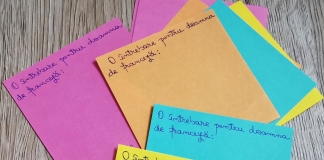 O întrebare pentru doamna
de franceză:
O întrebare pentru doamna
de franceză:
O întrebare pentru doamna
de franceză:
O întrebare pentru doamna